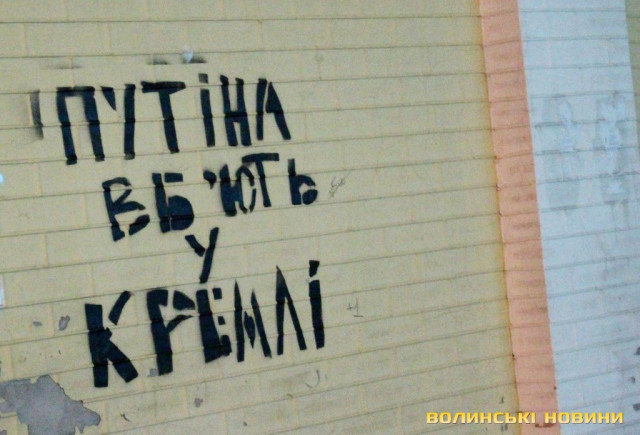 ПУТІНА
ВБ'ЮТЬ
У
КРЕМЛІ
ВОЛИНСЬКІ НОВИНИ